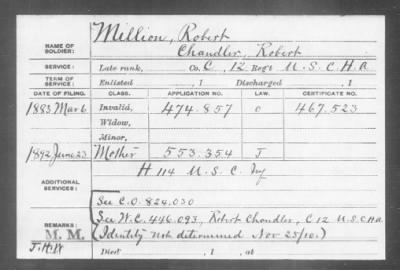 Million, Robert
NAME OF SOLDIER: Chandler, Robert
SERVICE: Late rank, Co. C, 12 Reg't U. S. C. H. A.
TERM OF SERVICE: Enlisted , 1 Discharged , 1
DATE OF FILING. CLASS. APPLICATION NO. LAW. CERTIFICATE NO.
1883 Mar 6 Invalid, 474.857 C 467.523
Widow,
Minor,
1892 June 23 Mother 553.354 J
ADDITIONAL SERVICES: H 114 U. S. C. Inf
See C. O. 824.030
REMARKS: See W. C. 446.093, Robert Chandler, C 12 U.S.C.H.A.
M. M. (Identity not determined Nov. 25/10.)
J.H.W Died , 1 , at